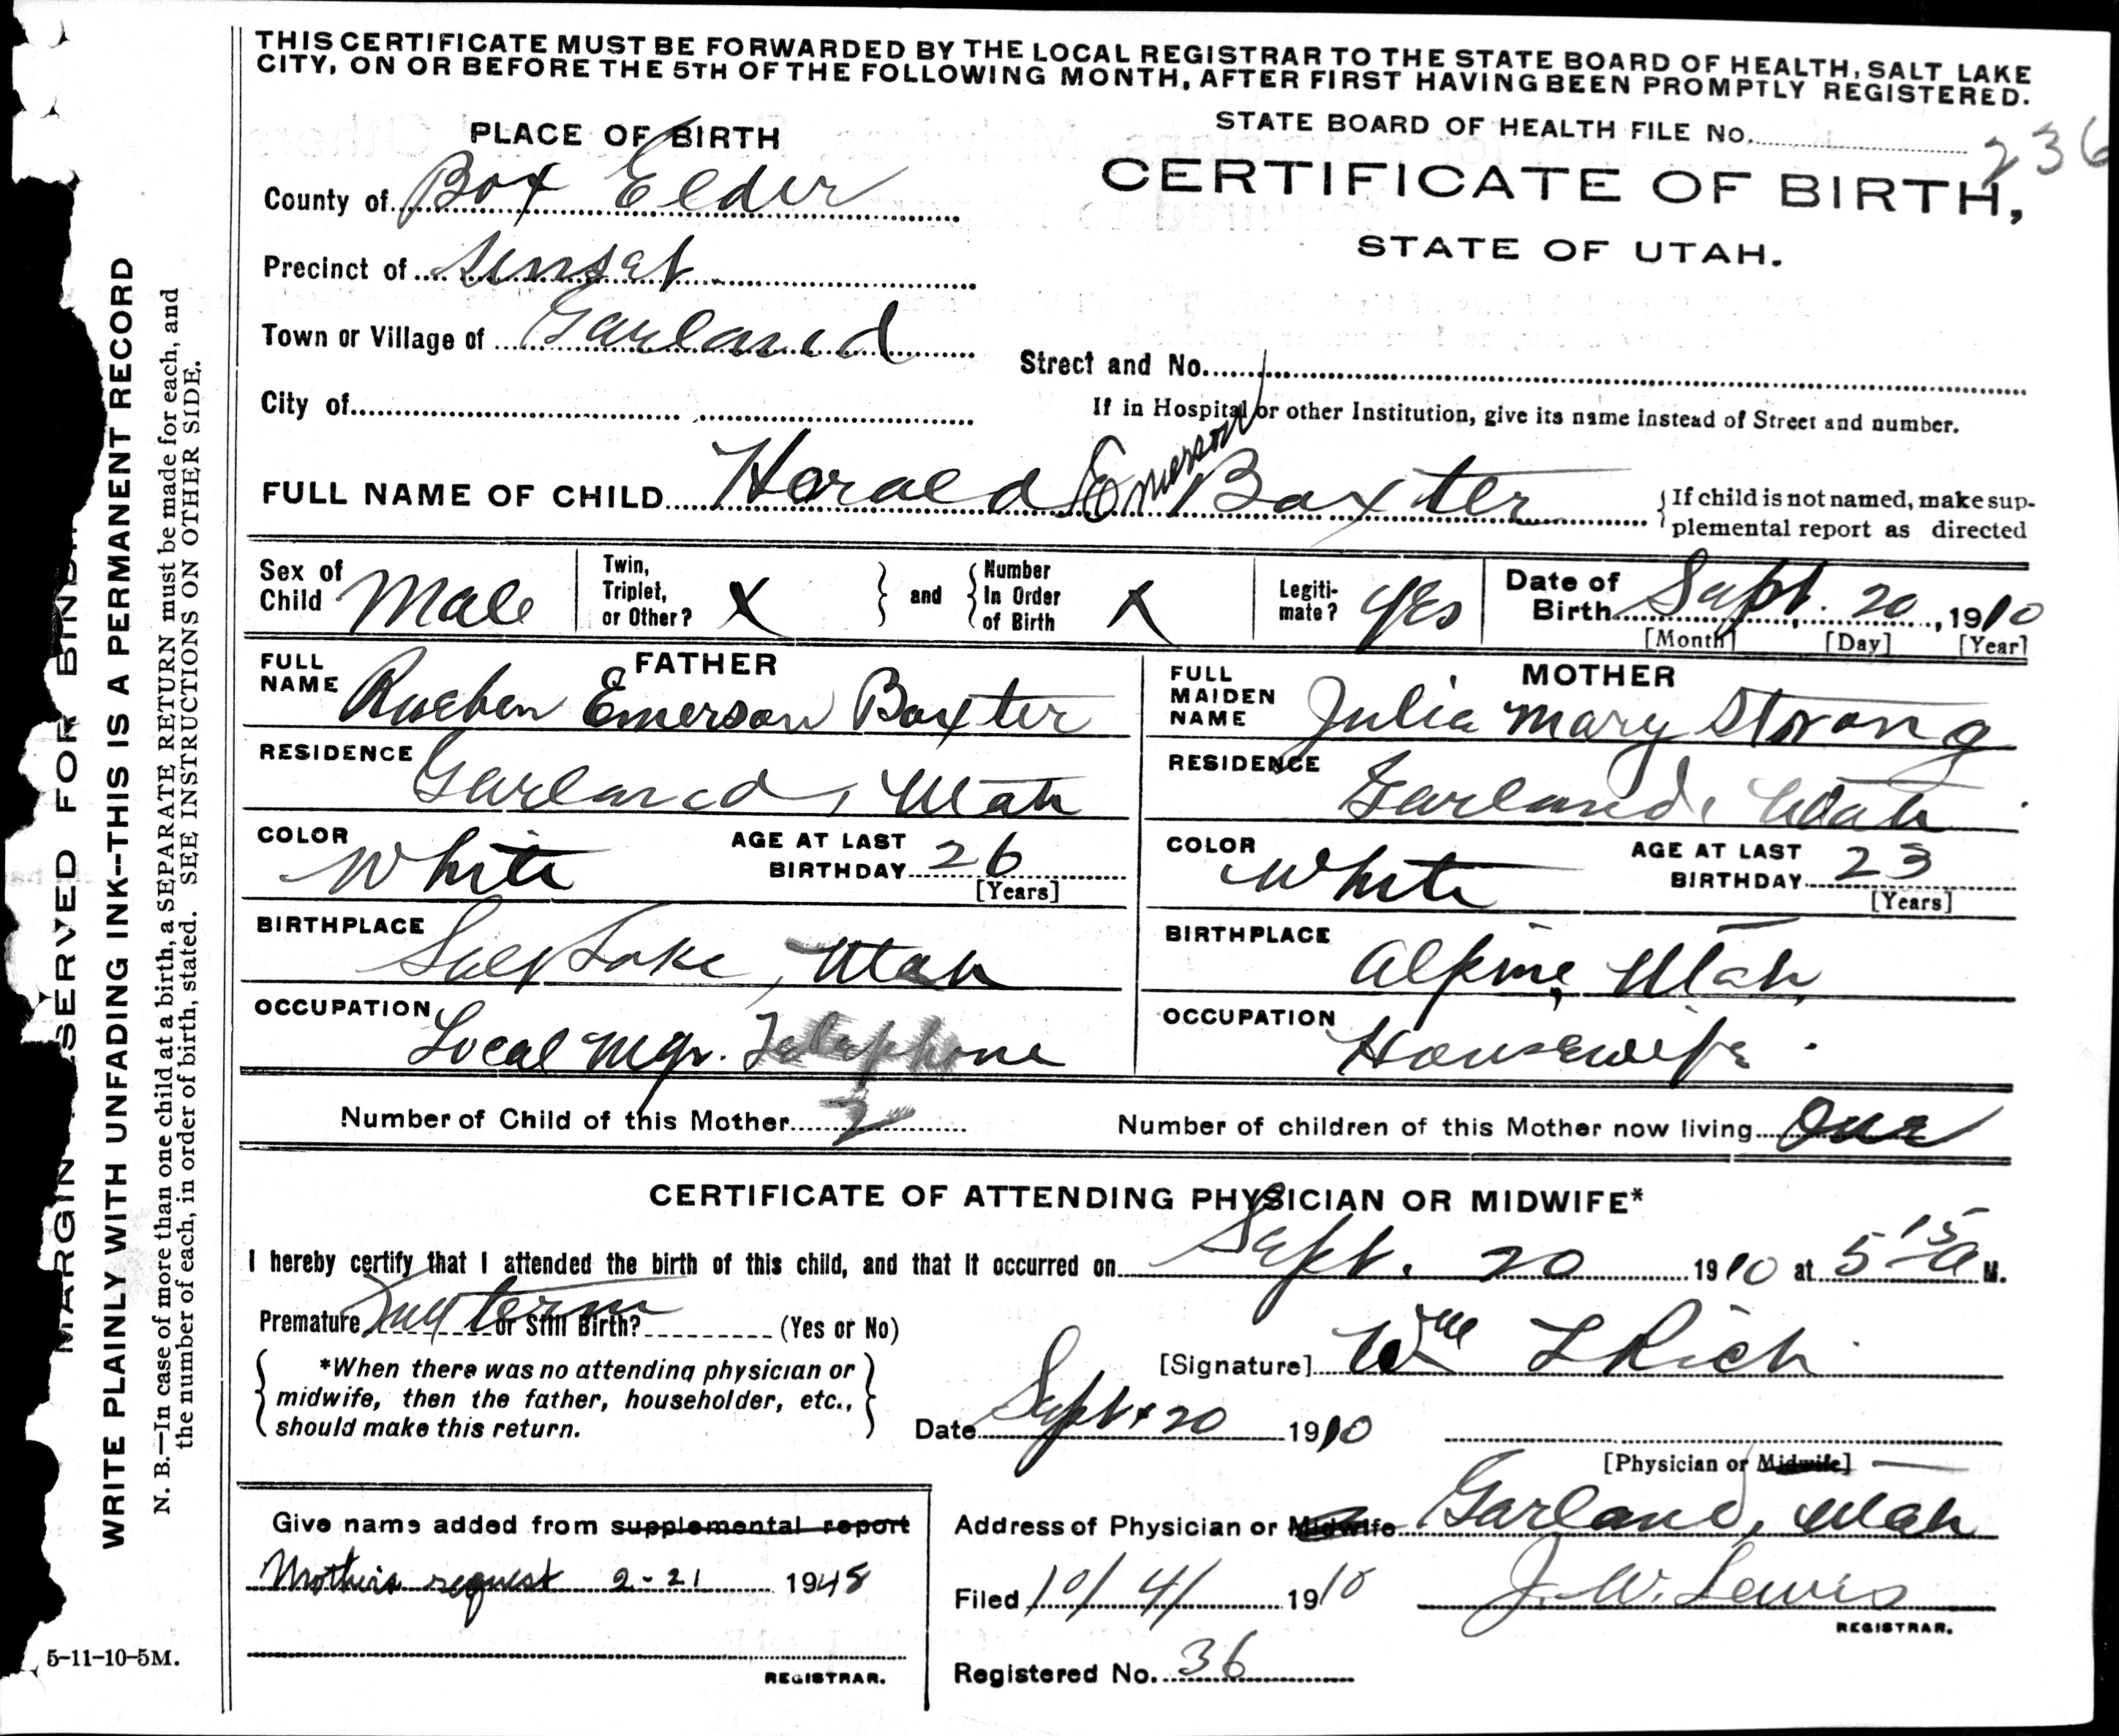 THIS CERTIFICATE MUST BE FORWARDED BY THE LOCAL REGISTRAR TO THE STATE BOARD OF HEALTH, SALT LAKE
CITY, ON OR BEFORE THE 5TH OF THE FOLLOWING MONTH, AFTER FIRST HAVING BEEN PROMPTLY REGISTERED.
PLACE OF BIRTH
STATE BOARD OF HEALTH FILE No. 236
CERTIFICATE OF BIRTH,
STATE OF UTAH.
County of Box Elder
Precinct of Sunset
Town or Village of Garland
Street and No.
City of
If in Hospital or other Institution, give its name instead of Street and number.
FULL NAME OF CHILD Harald Emerson Baxter
If child is not named, make sup-
plemental report as directed
Sex of Child Male
Twin, Triplet, or Other? X
and
Number In Order of Birth X
Legiti-mate? Yes
Date of Birth Sept. 20, 1910
[Month] [Day] [Year]
FATHER
FULL NAME Rueben Emerson Baxter
MOTHER
FULL MAIDEN NAME Julia Mary Strong
RESIDENCE Garland, Utah
RESIDENCE Garland, Utah
COLOR White
AGE AT LAST BIRTHDAY 26
[Years]
COLOR White
AGE AT LAST BIRTHDAY 23
[Years]
BIRTHPLACE Salt Lake, Utah
BIRTHPLACE Alpine, Utah,
OCCUPATION Local Mgr. Telephone
OCCUPATION Housewife.
Number of Child of this Mother 2
Number of children of this Mother now living One
CERTIFICATE OF ATTENDING PHYSICIAN OR MIDWIFE*
I hereby certify that I attended the birth of this child, and that it occurred on Sept. 20 1910 at 5 15 a M.
Premature or Still Birth? (Yes or No)
Full term
*When there was no attending physician or
midwife, then the father, householder, etc.,
should make this return.
[Signature] Wm L Rich
Date Sept. 20 1910
[Physician or Midwife]
Give name added from supplemental report
Mothers request 2-21 1948
REGISTRAR.
Address of Physician or Midwife Garland, Utah
Filed 10/4/ 1910
J. W. Lewis
REGISTRAR.
Registered No. 36
MARGIN RESERVED FOR BINDI
WRITE PLAINLY WITH UNFADING INK--THIS IS A PERMANENT RECORD
N. B.—In case of more than one child at a birth, a SEPARATE RETURN must be made for each, and
the number of each, in order of birth, stated. SEE INSTRUCTIONS ON OTHER SIDE.
5-11-10-5M.